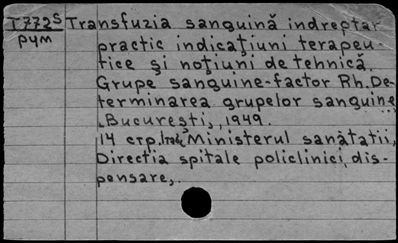 T772s Transfuzia sanguină indreptar
рум practic indicaţiuni terapeu-
tice şi noţiuni de tehnică.
Grupe sanguine-factor Rh. De-
terminarea grupelor sanguine
Bucureşti, 1949.
14 стр. Ministerul sanâtatii,
Directia spitale policlinici, dis-
pensare,.